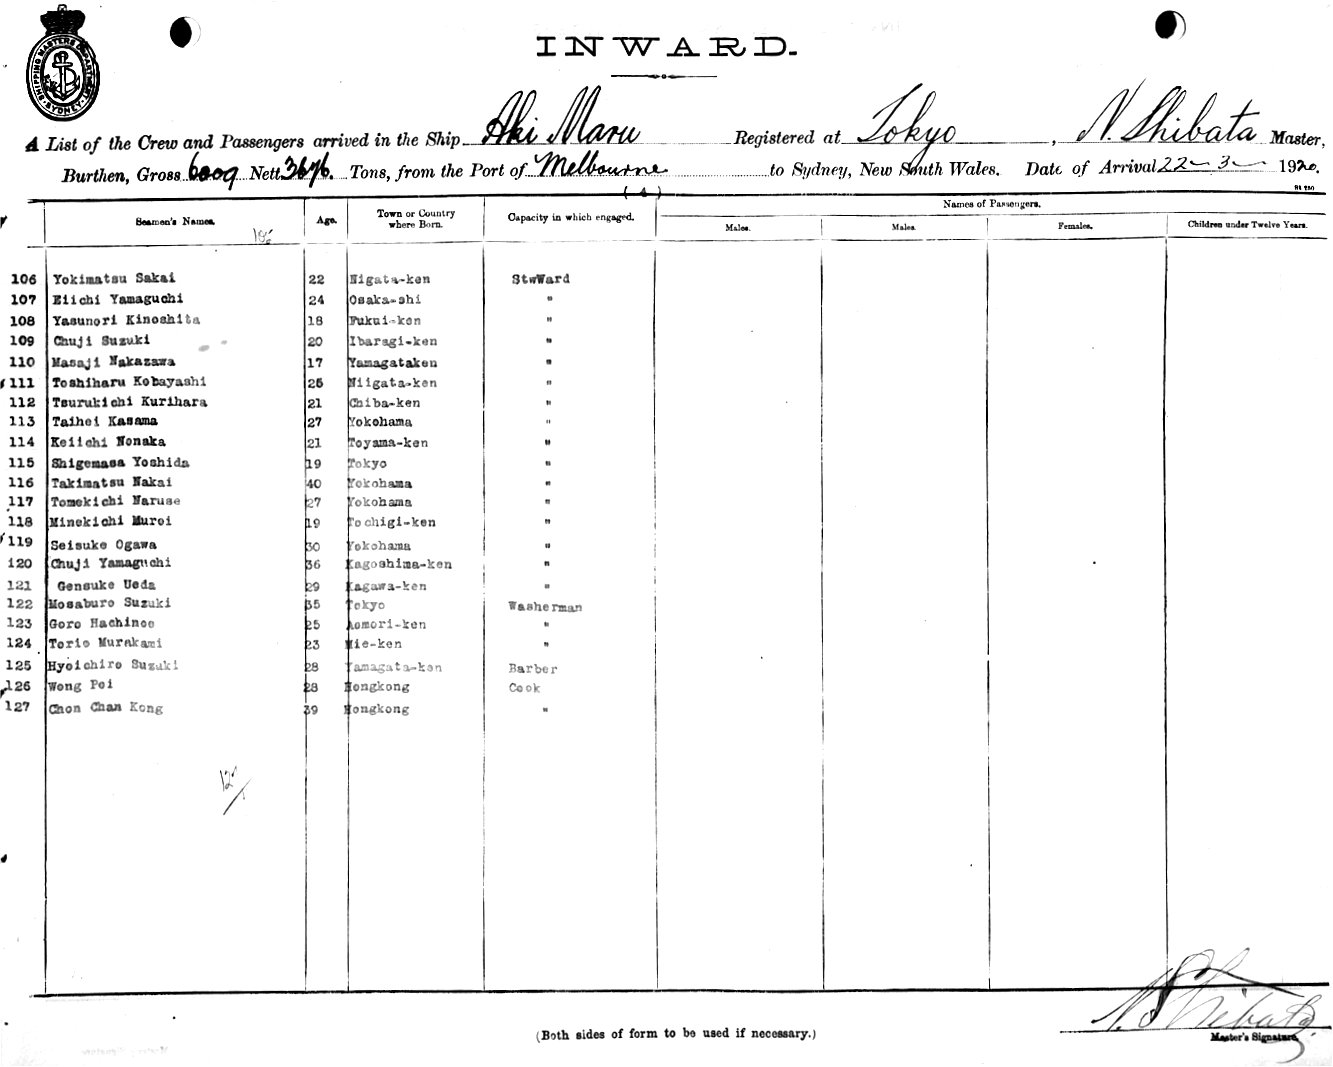 SHIPPING MASTERS DEPARTMENT SYDNEY
INWARD.
A List of the Crew and Passengers arrived in the Ship Aki Maru Registered at Tokyo, N. Shibata Master,
Burthen, Gross 6009 Nett 3676. Tons, from the Port of Melbourne to Sydney, New South Wales. Date of Arrival 22-3-1920.
(4)
Seamen's Names. Age. Town or Country where Born. Capacity in which engaged. Names of Passengers.
Males. Males. Females. Children under Twelve Years.
105
106 Yokimatsu Sakai 22 Nigata-ken StwWard
107 Eiichi Yamaguchi 24 Osaka-shi "
108 Yasunori Kinoshita 18 Fukui-ken "
109 Chuji Suzuki 20 Ibaragi-ken "
110 Masaji Nakazawa 17 Yamagataken "
111 Toshiharu Kobayashi 25 Niigata-ken "
112 Tsurukichi Kurihara 21 Chiba-ken "
113 Taihei Kasama 27 Yokohama "
114 Keiichi Nonaka 21 Toyama-ken "
115 Shigemasa Yoshida 19 Tokyo "
116 Takimatsu Nakai 40 Yokohama "
117 Tomekichi Naruse 27 Yokohama "
118 Minekichi Muroi 19 Tochigi-ken "
119 Seisuke Ogawa 30 Yokohama "
120 Chuji Yamaguchi 36 Kagoshima-ken "
121 Gensuke Ueda 29 Kagawa-ken "
122 Mosaburo Suzuki 35 Tokyo Washerman
123 Goro Hachinoe 25 Aomori-ken "
124 Torio Murakami 23 Mie-ken "
125 Hyoichiro Suzuki 28 Yamagata-ken Barber
126 Wong Poi 28 Hongkong Cook
127 Chon Chan Kong 39 Hongkong "
N. Shibata
Master's Signature.
(Both sides of form to be used if necessary.)